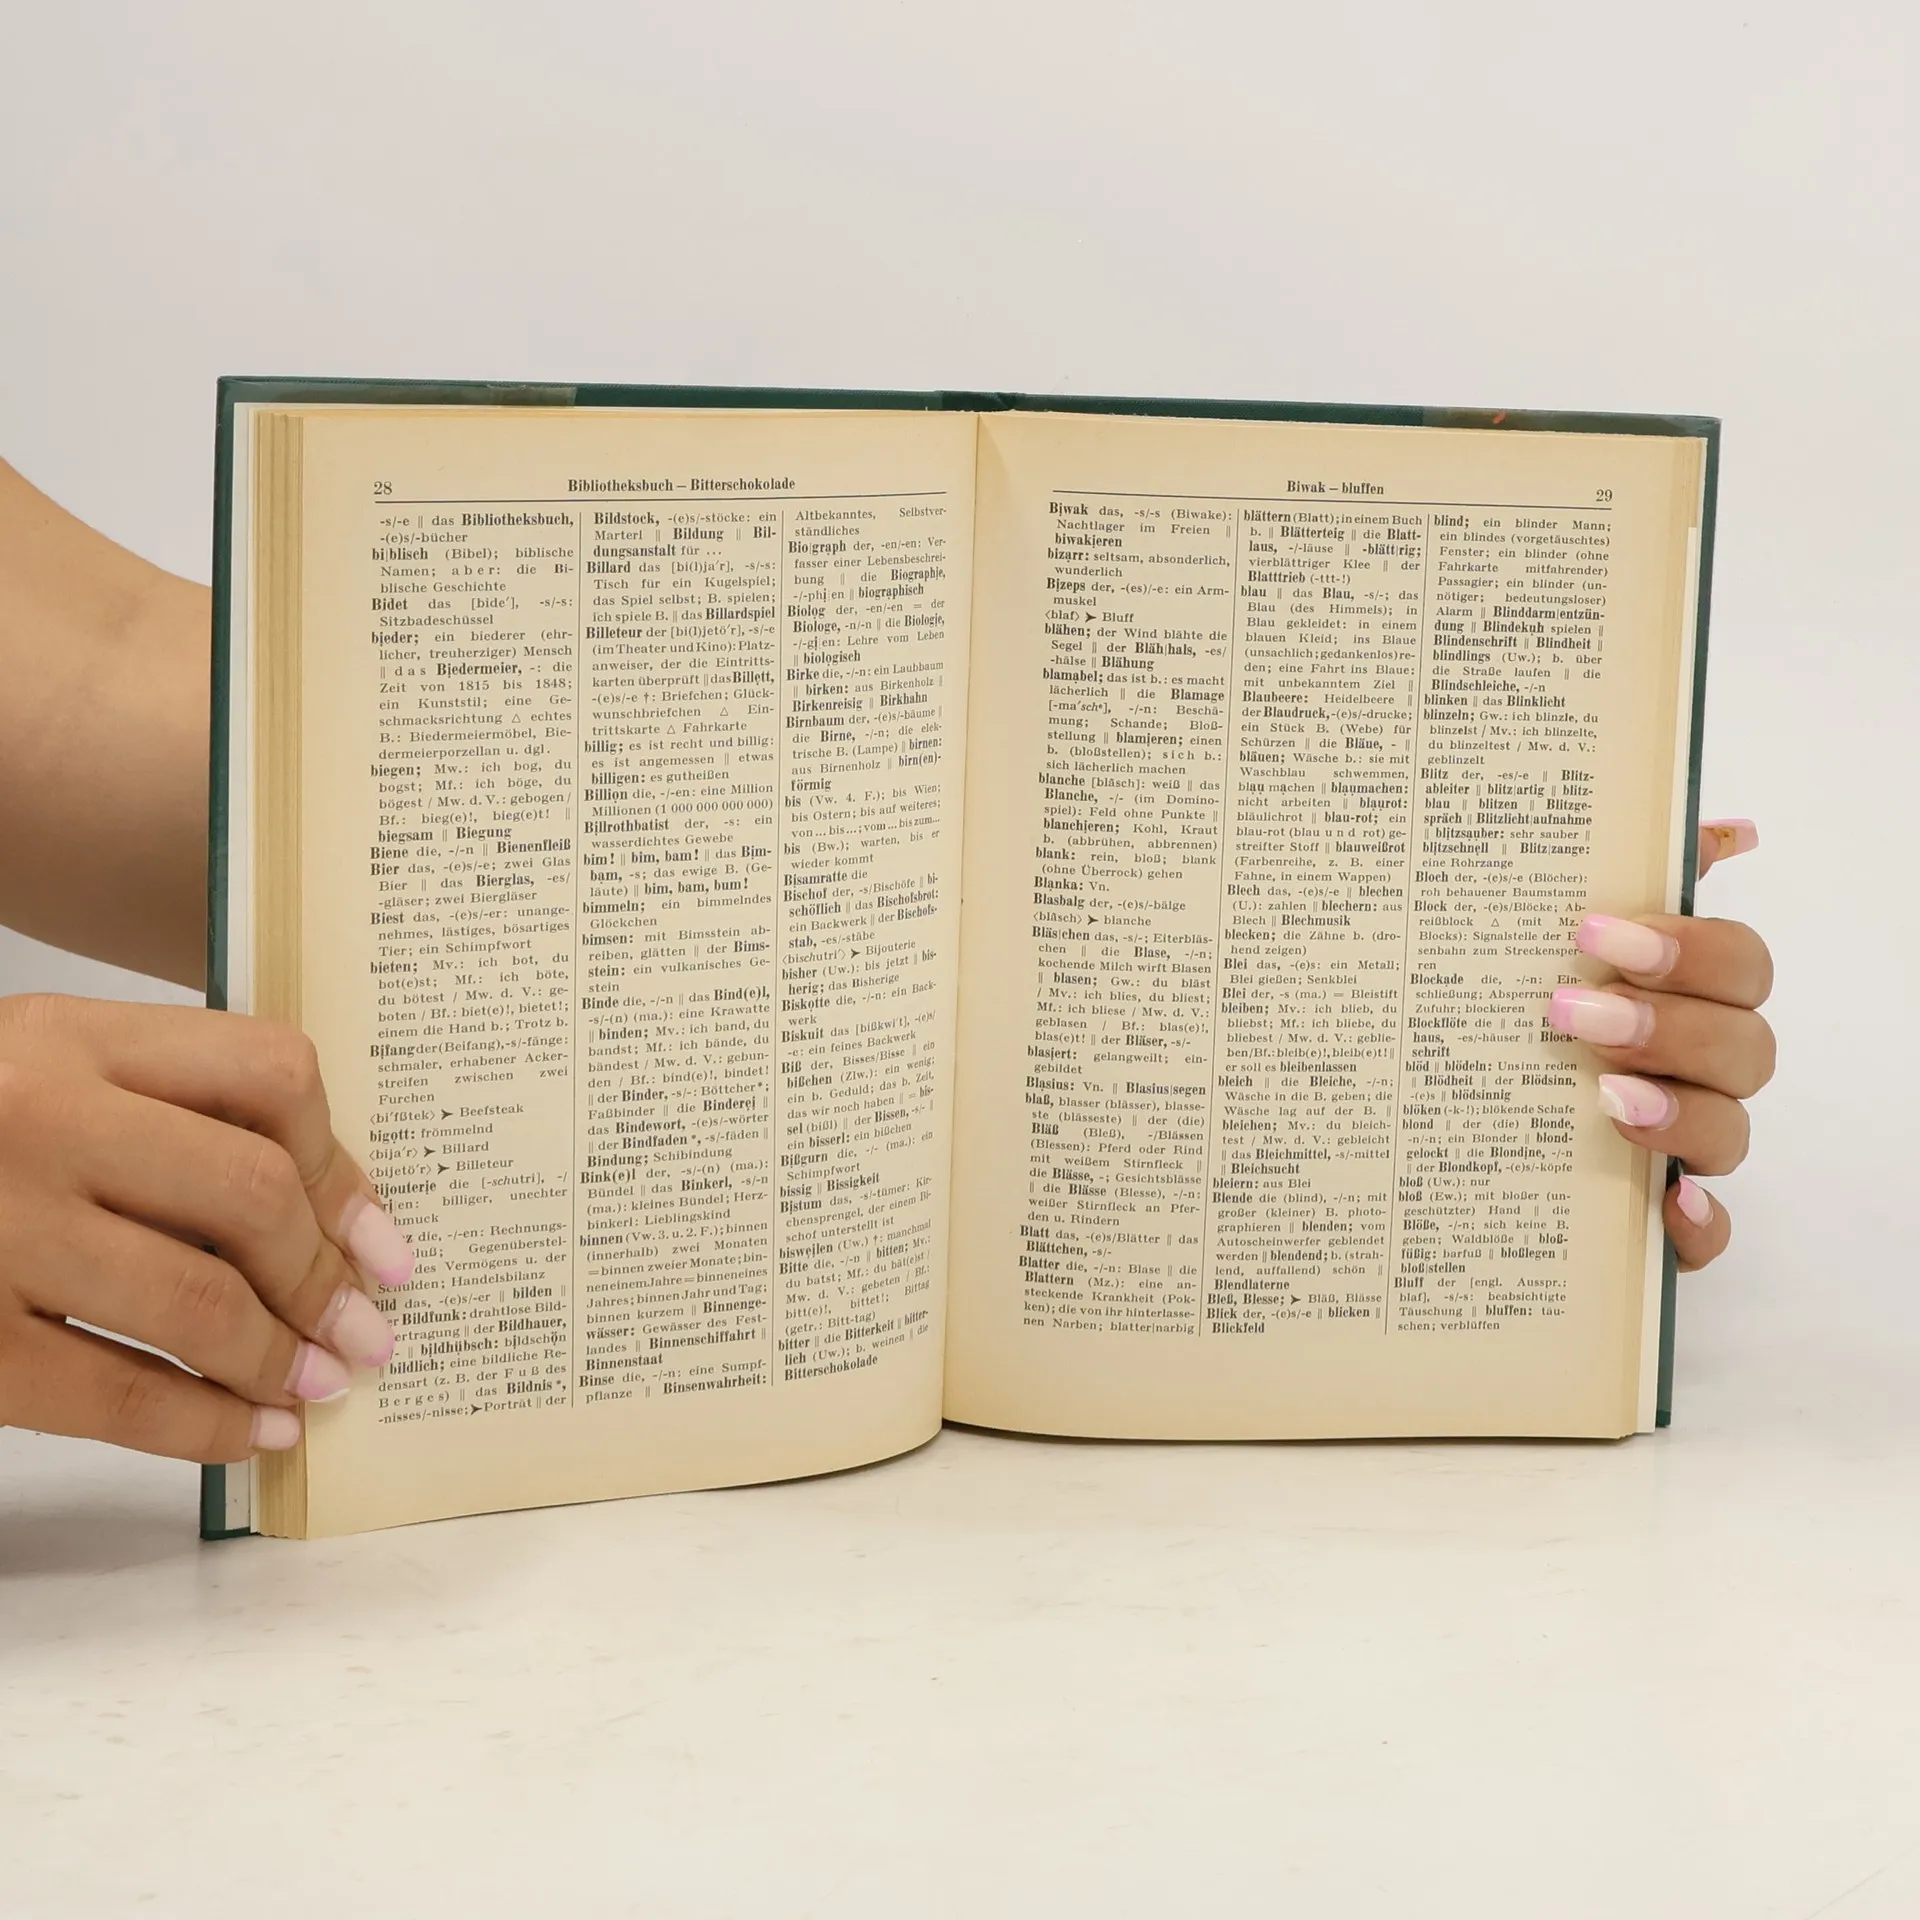 28
Bibliotheksbuch – Bitterschokolade
-s/-e ‖ das Bibliotheksbuch,
-(e)s/-bücher
bi|blisch (Bibel); biblische
Namen; aber: die Bi-
blische Geschichte
Bidet das [bide'], -s/-s:
Sitzbadeschüssel
bieder; ein biederer (ehr-
licher, treuherziger) Mensch
‖ das Biedermeier, -: die
Zeit von 1815 bis 1848;
ein Kunststil; eine Ge-
schmacksrichtung △ echtes
B.: Biedermeiermöbel, Bie-
dermeierporzellan u. dgl.
biegen; Mw.: ich bog, du
bogst; Mf.: ich böge, du
bögest / Mw. d. V.: gebogen /
Bf.: bieg(e)!, bieg(e)t! ‖
biegsam ‖ Biegung
Biene die, -/-n ‖ Bienenfleiß
Bier das, -(e)s/-e; zwei Glas
Bier ‖ das Bierglas, -es/
-gläser; zwei Biergläser
Biest das, -(e)s/-er: unange-
nehmes, lästiges, bösartiges
Tier; ein Schimpfwort
bieten; Mv.: ich bot, du
bot(e)st; Mf.: ich böte,
du bötest / Mw. d. V.: ge-
boten / Bf.: biet(e)!, bietet!;
einem die Hand b.; Trotz b.
Bifang der (Beifang), -s/-fänge:
schmaler, erhabener Acker-
streifen zwischen zwei
Furchen
⟨bi'fßtek⟩ ➤ Beefsteak
bigott: frömmelnd
⟨bija'r⟩ ➤ Billard
⟨bijetö'r⟩ ➤ Billeteur
Bijouterie die [-schutri], -/
en: billiger, unechter
hmuck
z die, -/-en: Rechnungs-
luß; Gegenüberstel-
des Vermögens u. der
Schulden; Handelsbilanz
Bild das, -(e)s/-er ‖ bilden ‖
er Bildfunk: drahtlose Bild-
ertragung ‖ der Bildhauer,
/- ‖ bildhübsch: bildschön
‖ bildlich; eine bildliche Re-
densart (z. B. der Fuß des
Berges) ‖ das Bildnis*,
-nisses/-nisse; ➤ Porträt ‖ der
Bildstock, -(e)s/-stöcke: ein
Marterl ‖ Bildung ‖ Bil-
dungsanstalt für ...
Billard das [bi(l)ja'r], -s/-s:
Tisch für ein Kugelspiel;
das Spiel selbst; B. spielen;
ich spiele B. ‖ das Billardspiel
Billeteur der [bi(l)jetö'r], -s/-e
(im Theater und Kino): Platz-
anweiser, der die Eintritts-
karten überprüft ‖ das Billett,
-(e)s/-e †: Briefchen; Glück-
wunschbriefchen △ Ein-
trittskarte △ Fahrkarte
billig; es ist recht und billig:
es ist angemessen ‖ etwas
billigen: es gutheißen
Billion die, -/-en: eine Million
Millionen (1 000 000 000 000)
Billrothbatist der, -s: ein
wasserdichtes Gewebe
bim! ‖ bim, bam! ‖ das Bim-
bam, -s; das ewige B. (Ge-
läute) ‖ bim, bam, bum!
bimmeln; ein bimmelndes
Glöckchen
bimsen: mit Bimsstein ab-
reiben, glätten ‖ der Bims-
stein: ein vulkanisches Ge-
stein
Binde die, -/-n ‖ das Bind(e)l,
-s/-(n) (ma.): eine Krawatte
‖ binden; Mv.: ich band, du
bandst; Mf.: ich bände, du
bändest / Mw. d. V.: gebun-
den / Bf.: bind(e)!, bindet!
‖ der Binder, -s/-: Böttcher*;
Faßbinder ‖ die Binderei ‖
das Bindewort, -(e)s/-wörter
‖ der Bindfaden*, -s/-fäden ‖
Bindung; Schibindung
Bink(e)l der, -s/-(n) (ma.):
Bündel ‖ das Binkerl, -s/-n
(ma.): kleines Bündel; Herz-
binkerl: Lieblingskind
binnen (Vw. 3. u. 2. F.); binnen
(innerhalb) zwei Monaten
= binnen zweier Monate; bin-
nen einem Jahre = binnen eines
Jahres; binnen Jahr und Tag;
binnen kurzem ‖ Binnenge-
wässer: Gewässer des Fest-
landes ‖ Binnenschiffahrt ‖
Binnenstaat
Binse die, -/-n: eine Sumpf-
pflanze ‖ Binsenwahrheit:
Altbekanntes, Selbstver-
ständliches
Bio|graph der, -en/-en: Ver-
fasser einer Lebensbeschrei-
bung ‖ die Biographie,
-/-phi|en ‖ biographisch
Biolog der, -en/-en = der
Biologe, -n/-n ‖ die Biologie,
-/-gi|en: Lehre vom Leben
‖ biologisch
Birke die, -/-n: ein Laubbaum
‖ birken: aus Birkenholz ‖
Birkenreisig ‖ Birkhahn
Birnbaum der, -(e)s/-bäume ‖
die Birne, -/-n; die elek-
trische B. (Lampe) ‖ birnen:
aus Birnenholz ‖ birn(en)-
förmig
bis (Vw. 4. F.); bis Wien;
bis Ostern; bis auf weiteres;
von ... bis ...; vom ... bis zum ...
bis (Bw.); warten, bis er
wieder kommt
Bisamratte die
Bischof der, -s/Bischöfe ‖ bi-
schöflich ‖ das Bischofsbrot:
ein Backwerk ‖ der Bischofs-
stab, -es/-stäbe
⟨bischutri'⟩ ➤ Bijouterie
bisher (Uw.): bis jetzt ‖ bis-
herig; das Bisherige
Biskotte die, -/-n: ein Back-
werk
Biskuit das [bißkwi't], -(e)s/
-e: ein feines Backwerk
Biß der, Bisses/Bisse ‖ ein
bißchen (Zlw.): ein wenig;
ein b. Geduld; das b. Zeit,
das wir noch haben ‖ = bis-
sel (bißl) ‖ der Bissen, -s/- ‖
ein bisserl: ein bißchen
Bißgurn die, -/- (ma.): ein
Schimpfwort
bissig ‖ Bissigkeit
Bistum das, -s/-tümer: Kir-
chensprengel, der einem Bi-
schof unterstellt ist
bisweilen (Uw.) †: manchmal
Bitte die, -/-n ‖ bitten; Mv.:
du batst; Mf.: du bät(e)st /
Mw. d. V.: gebeten / Bf.:
bitt(e)!, bittet!; Bittag
(getr.: Bitt-tag)
bitter ‖ die Bitterkeit ‖ bitter-
lich (Uw.); b. weinen ‖ die
Bitterschokolade
Biwak – bluffen
29
Biwak das, -s/-s (Biwake):
Nachtlager im Freien ‖
biwakieren
bizarr: seltsam, absonderlich,
wunderlich
Bizeps der, -(es)/-e: ein Arm-
muskel
⟨blaf⟩ ➤ Bluff
blähen; der Wind blähte die
Segel ‖ der Bläh|hals, -es/
-hälse ‖ Blähung
blamabel; das ist b.: es macht
lächerlich ‖ die Blamage
[-ma'schᵉ], -/-n: Beschä-
mung; Schande; Bloß-
stellung ‖ blamieren; einen
b. (bloßstellen); sich b.:
sich lächerlich machen
blanche [bläsch]: weiß ‖ das
Blanche, -/- (im Domino-
spiel): Feld ohne Punkte ‖
blanchieren; Kohl, Kraut
b. (abbrühen, abbrennen)
blank: rein, bloß; blank
(ohne Überrock) gehen
Blanka: Vn.
Blasbalg der, -(e)s/-bälge
⟨bläsch⟩ ➤ blanche
Bläs|chen das, -s/-; Eiterbläs-
chen ‖ die Blase, -/-n;
kochende Milch wirft Blasen
‖ blasen; Gw.: du bläst
/ Mv.: ich blies, du bliest;
Mf.: ich bliese / Mw. d. V.:
geblasen / Bf.: blas(e)!,
blas(e)t! ‖ der Bläser, -s/-
blasiert: gelangweilt; ein-
gebildet
Blasius: Vn. ‖ Blasius|segen
blaß, blasser (blässer), blasse-
ste (blässeste) ‖ der (die)
Bläß (Bleß), -/Blässen
(Blessen): Pferd oder Rind
mit weißem Stirnfleck ‖
die Blässe, -; Gesichtsblässe
‖ die Blässe (Blesse), -/-n:
weißer Stirnfleck an Pfer-
den u. Rindern
Blatt das, -(e)s/Blätter ‖ das
Blättchen, -s/-
Blatter die, -/-n: Blase ‖ die
Blattern (Mz.): eine an-
steckende Krankheit (Pok-
ken); die von ihr hinterlasse-
nen Narben; blatter|narbig
blättern (Blatt); in einem Buch
b. ‖ Blätterteig ‖ die Blatt-
laus, -/-läuse ‖ -blätt|rig;
vierblättriger Klee ‖ der
Blatttrieb (-ttt-!)
blau ‖ das Blau, -s/-; das
Blau (des Himmels); in
Blau gekleidet: in einem
blauen Kleid; ins Blaue
(unsachlich; gedankenlos) re-
den; eine Fahrt ins Blaue:
mit unbekanntem Ziel ‖
Blaubeere: Heidelbeere ‖
der Blaudruck, -(e)s/-drucke;
ein Stück B. (Webe) für
Schürzen ‖ die Bläue, - ‖
bläuen; Wäsche b.: sie mit
Waschblau schwemmen,
blau machen ‖ blaumachen:
nicht arbeiten ‖ blaurot:
bläulichrot ‖ blau-rot; ein
blau-rot (blau und rot) ge-
streifter Stoff ‖ blauweißrot
(Farbenreihe, z. B. einer
Fahne, in einem Wappen)
Blech das, -(e)s/-e ‖ blechen
(U.): zahlen ‖ blechern: aus
Blech ‖ Blechmusik
blecken; die Zähne b. (dro-
hend zeigen)
Blei das, -(e)s: ein Metall;
Blei gießen; Senkblei
Blei der, -s (ma.) = Bleistift
bleiben; Mv.: ich blieb, du
bliebst; Mf.: ich bliebe, du
bliebest / Mw. d. V.: geblie-
ben/Bf.: bleib(e)!, bleib(e)t! ‖
er soll es bleibenlassen
bleich ‖ die Bleiche, -/-n;
Wäsche in die B. geben; die
Wäsche lag auf der B. ‖
bleichen; Mv.: du bleich-
test / Mw. d. V.: gebleicht
‖ das Bleichmittel, -s/-mittel
‖ Bleichsucht
bleiern: aus Blei
Blende die (blind), -/-n; mit
großer (kleiner) B. photo-
graphieren ‖ blenden; vom
Autoscheinwerfer geblendet
werden ‖ blendend; b. (strah-
lend, auffallend) schön ‖
Blendlaterne
Bleß, Blesse; ➤ Bläß, Blässe
Blick der, -(e)s/-e ‖ blicken ‖
Blickfeld
blind; ein blinder Mann;
ein blindes (vorgetäuschtes)
Fenster; ein blinder (ohne
Fahrkarte mitfahrender)
Passagier; ein blinder (un-
nötiger; bedeutungsloser)
Alarm ‖ Blinddarm|entzün-
dung ‖ Blindekuh spielen ‖
Blindenschrift ‖ Blindheit ‖
blindlings (Uw.); b. über
die Straße laufen ‖ die
Blindschleiche, -/-n
blinken ‖ das Blinklicht
blinzeln; Gw.: ich blinzle, du
blinzelst / Mv.: ich blinzelte,
du blinzeltest / Mw. d. V.:
geblinzelt
Blitz der, -es/-e ‖ Blitz-
ableiter ‖ blitz|artig ‖ blitz-
blau ‖ blitzen ‖ Blitzge-
spräch ‖ Blitzlicht|aufnahme
‖ blitzsauber: sehr sauber ‖
blitzschnell ‖ Blitz|zange:
eine Rohrzange
Bloch der, -(e)s/-e (Blöcher):
roh behauener Baumstamm
Block der, -(e)s/Blöcke; Ab-
reißblock △ (mit Mz.:
Blocks): Signalstelle der E
senbahn zum Streckensper-
ren
Blockade die, -/-n: Ein-
schließung; Absperrung
Zufuhr; blockieren
Blockflöte die ‖ das B
haus, -es/-häuser ‖ Block-
schrift
blöd ‖ blödeln: Unsinn reden
‖ Blödheit ‖ der Blödsinn,
-(e)s ‖ blödsinnig
blöken (-k-!); blökende Schafe
blond ‖ der (die) Blonde,
-n/-n; ein Blonder ‖ blond-
gelockt ‖ die Blondine, -/-n
‖ der Blondkopf, -(e)s/-köpfe
bloß (Uw.): nur
bloß (Ew.); mit bloßer (un-
geschützter) Hand ‖ die
Blöße, -/-n; sich keine B.
geben; Waldblöße ‖ bloß-
füßig: barfuß ‖ bloßlegen ‖
bloß|stellen
Bluff der [engl. Ausspr.:
blaf], -s/-s: beabsichtigte
Täuschung ‖ bluffen: täu-
schen; verblüffen